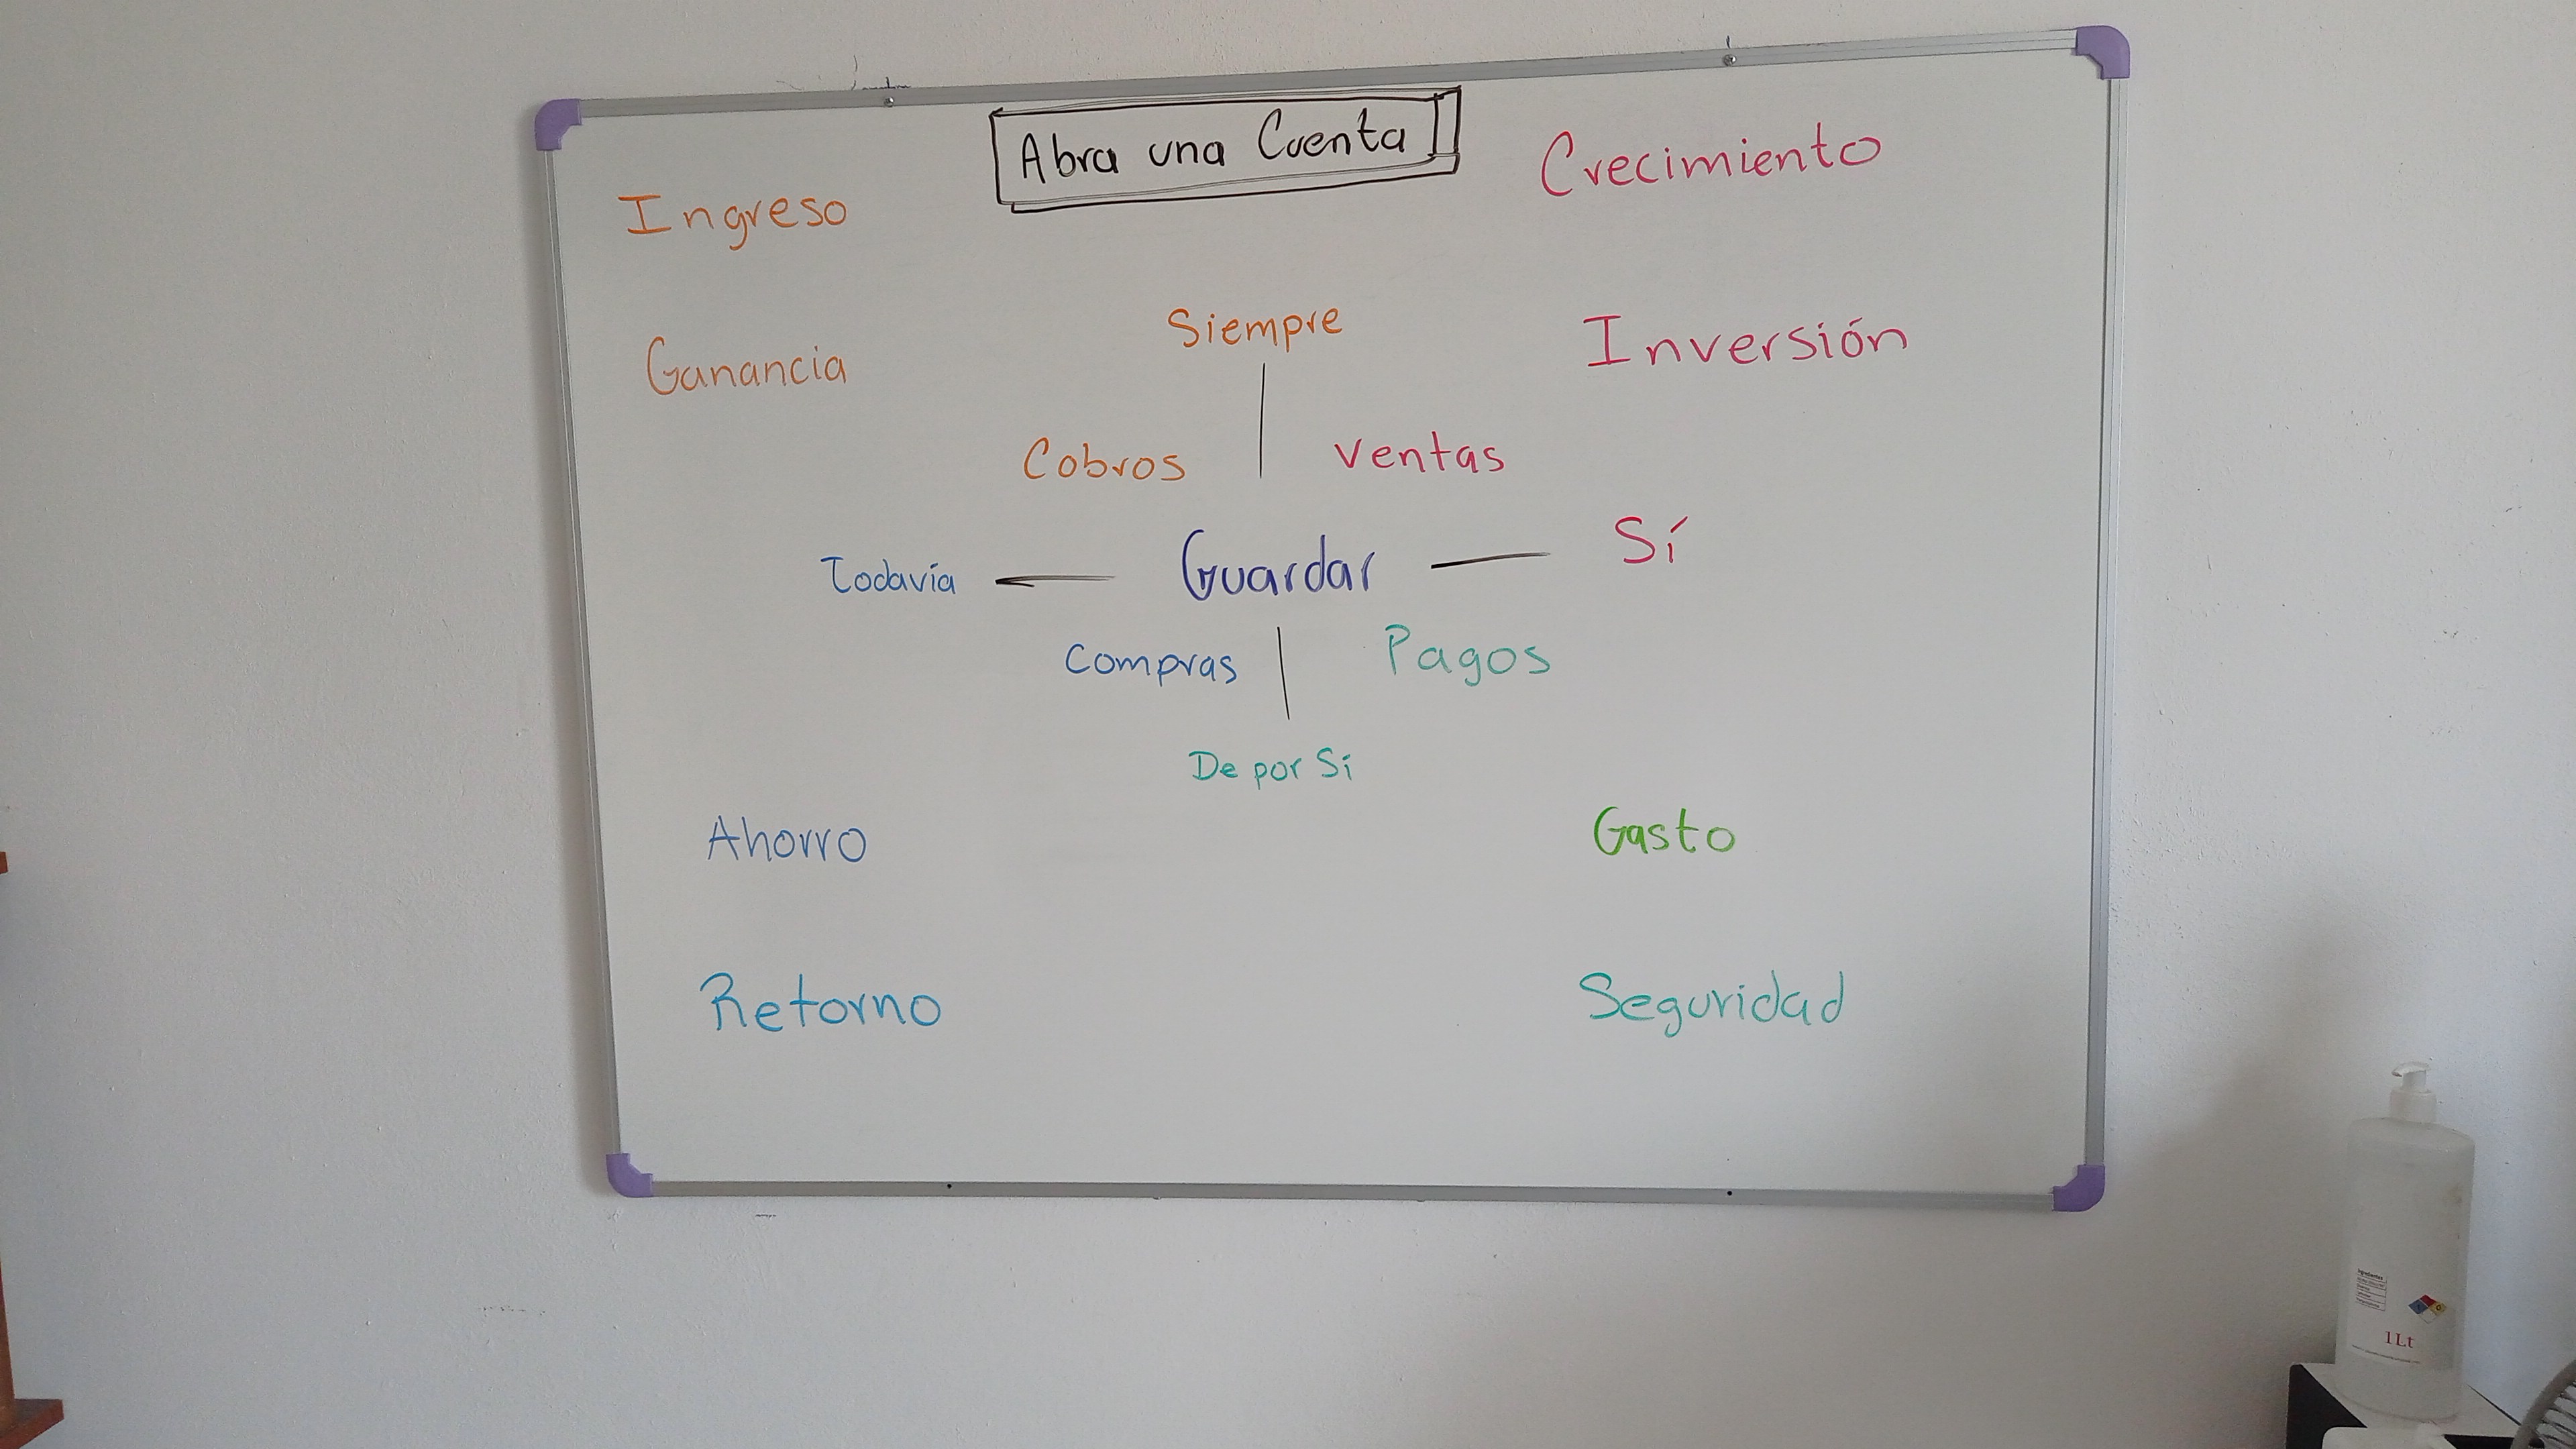 Abra una Cuenta
Crecimiento
Ingreso
Siempre
Inversión
Ganancia
Cobros
Ventas
Todavía
Guardar
Sí
Compras
Pagos
De por Sí
Ahorro
Gasto
Retorno
Seguridad
1Lt